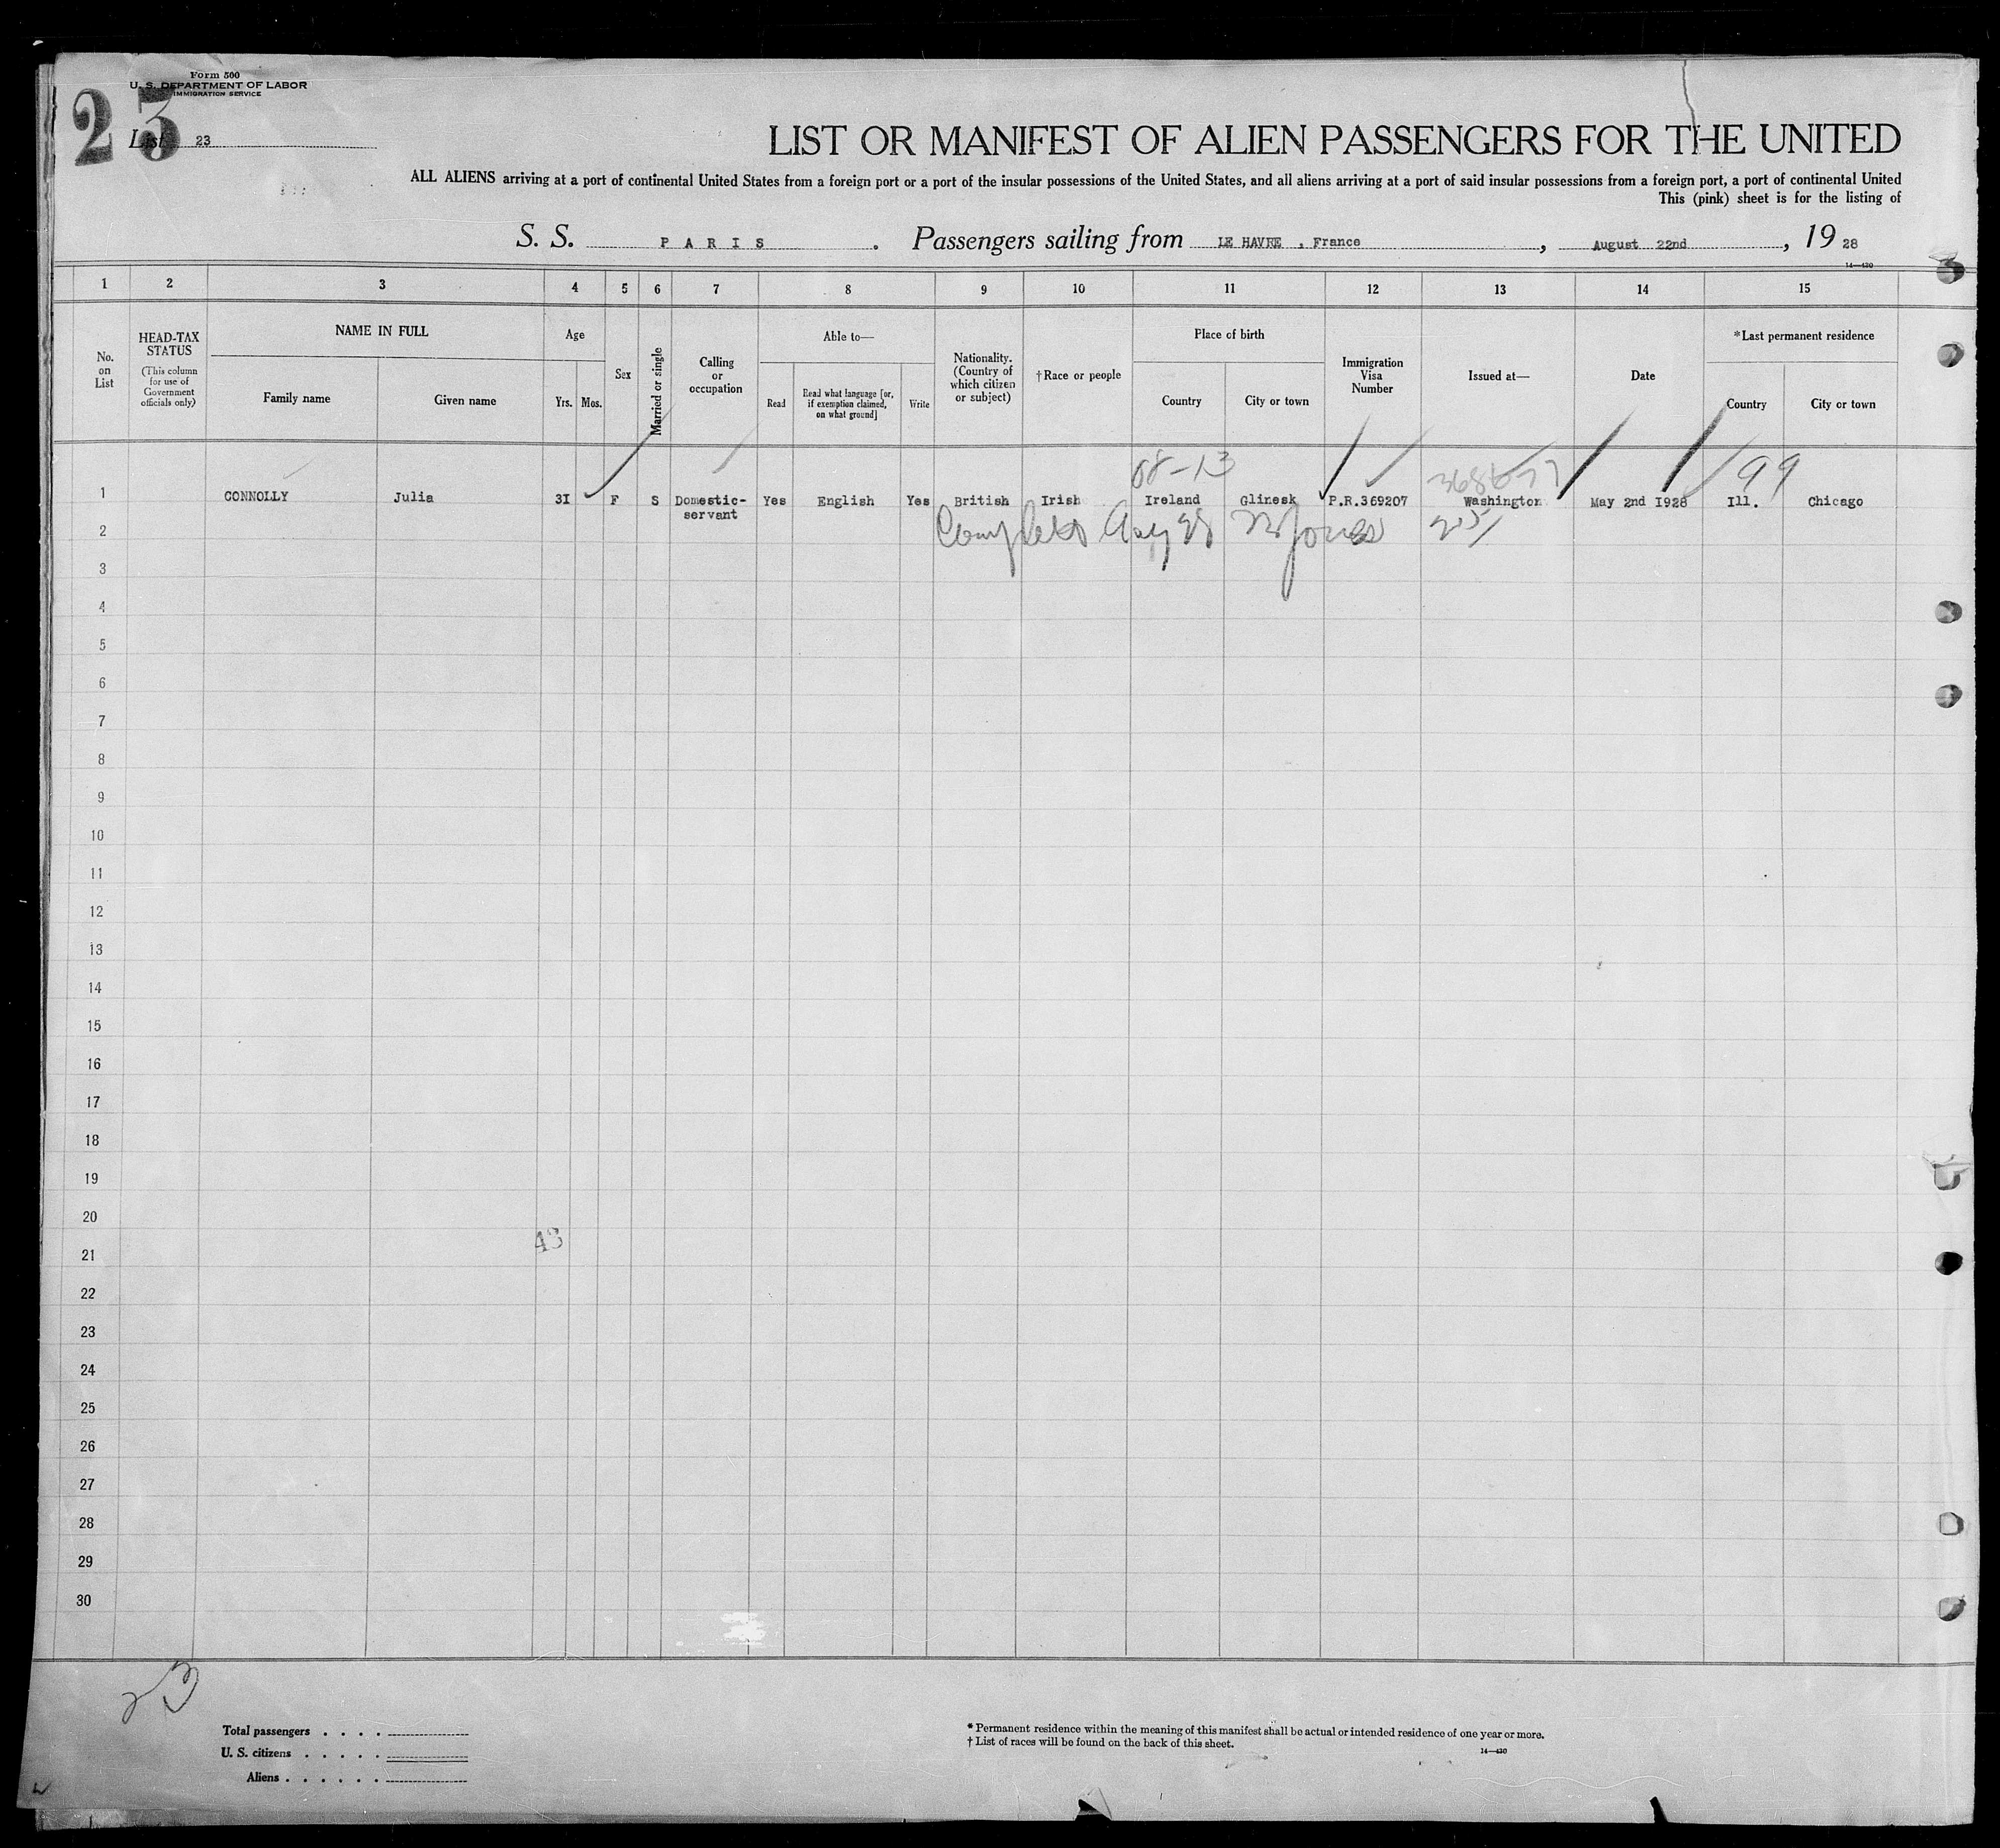 Form 500
U. S. DEPARTMENT OF LABOR
IMMIGRATION SERVICE
23
List 23
LIST OR MANIFEST OF ALIEN PASSENGERS FOR THE UNITED
ALL ALIENS arriving at a port of continental United States from a foreign port or a port of the insular possessions of the United States, and all aliens arriving at a port of said insular possessions from a foreign port, a port of continental United
This (pink) sheet is for the listing of
S. S. PARIS. Passengers sailing from LE HAVRE , France, August 22nd, 19 28
14—430
1 2 3 4 5 6 7 8 9 10 11 12 13 14 15
No. on List
HEAD-TAX STATUS
(This column for use of Government officials only)
NAME IN FULL
Family name Given name
Age
Yrs. Mos.
Sex
Married or single
Calling or occupation
Able to—
Read
Read what language [or, if exemption claimed, on what ground]
Write
Nationality. (Country of which citizen or subject)
†Race or people
Place of birth
Country City or town
Immigration Visa Number
Issued at—
Date
*Last permanent residence
Country City or town
08-13 99
1 CONNOLLY Julia 3I F S Domestic- Yes English Yes British Irish Ireland Glinesk P.R.369207 Washington May 2nd I928 Ill. Chicago
servant
2 Jones
3
4
5
6
7
8
9
10
11
12
13
14
15
16
17
18
19
20
43
21
22
23
24
25
26
27
28
29
30
23
Total passengers . . . .
U. S. citizens . . . . .
Aliens . . . . . .
* Permanent residence within the meaning of this manifest shall be actual or intended residence of one year or more.
† List of races will be found on the back of this sheet.
14—430